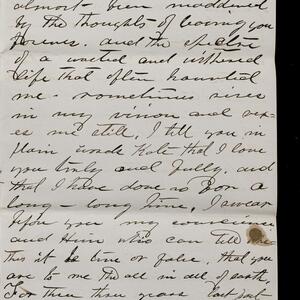 almost been maddened
by the thoughts of losing you
forever. and the spectre
of a wasted and withered
life that often haunted
me - sometimes rises
in my vision and vex-
es me still. I tell you in
plain words Kate that I love
you truly and fully. and
that I have done so for a
long - long time. I swear
upon you my conscience
and Him who can tell
this it be true or false, that you
are to me the all in all of earth.
For three years